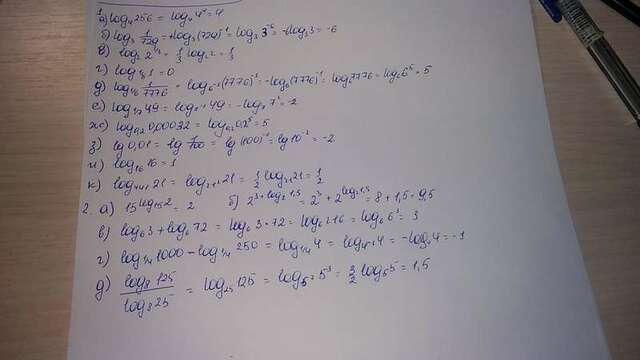 1.
а) log₄256 = log₄4⁴ = 4
б) log₃ 1/729 = log₃(729)⁻¹ = log₃3⁻⁶ = -6log₃3 = -6
в) log₂2^(1/3) = 1/3 log₂2 = 1/3
г) log₁₈1 = 0
д) log₁/₆ 1/7776 = log₆₋₁(7776)⁻¹ = -log₆(7776)⁻¹ = log₆7776 = log₆6⁵ = 5
е) log₁/₇49 = log₇₋₁49 = -log₇7² = -2
ж) log₀,₂0,00032 = log₀,₂0,2⁵ = 5
з) lg0,01 = lg 1/100 = lg(100)⁻¹ = lg10⁻² = -2
и) log₁₆16 = 1
к) log₄₄₁21 = log₂₁₂21 = 1/2 log₂₁21 = 1/2
2. а) 15^(log₁₅2) = 2 б) 2^(3+log₂1,5) = 2³ + 2^(log₂1,5) = 8 + 1,5 = 9,5
в) log₆3 + log₆72 = log₆3·72 = log₆216 = log₆6³ = 3
г) log₁/₄1000 - log₁/₄250 = log₁/₄4 = log₄₋₁4 = -log₄4 = -1
д) log₈125 / log₈25 = log₂₅125 = log₅₂5³ = 3/2 log₅5 = 1,5